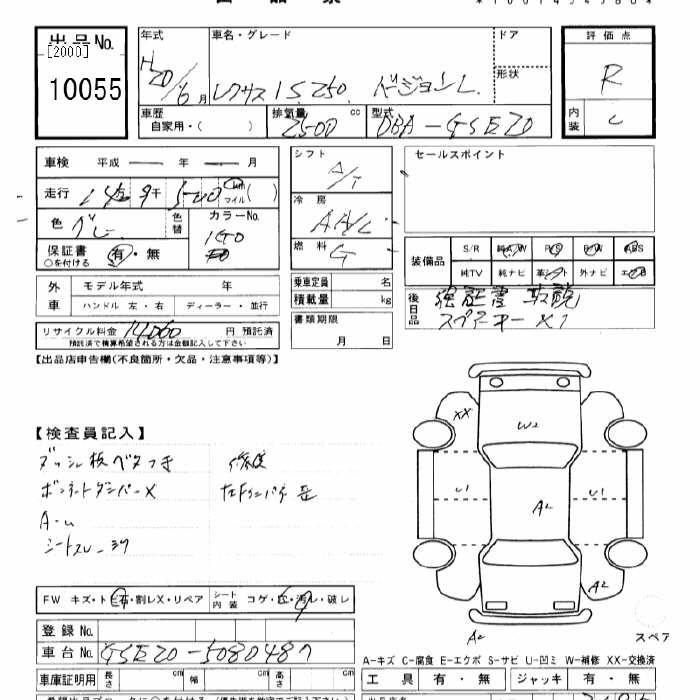 出品No.
[2000]
10055
年式
H20/6月
車名・グレード
レクサス IS250 バージョンL
ドア
形状
評価点
R
内装
C
車歴
自家用・( )
排気量
2500 cc
型式
DBA-GSE20
車検 平成 ー 年 ー 月
走行
km
マイル
( )
色 グレー
色替
カラーNo.
1G0
保証書 有・無
○を付ける
シフト
A/T
冷房
AAC
燃料
G
セールスポイント
装備品
S/R 純A/W P/S P/W ABS
純TV 純ナビ 革シート 外ナビ エアB
外車
モデル年式 年
ハンドル 左・右 ディーラー・並行
乗車定員 名
積載量 kg
後日品
保証書 取説
スペアーキー×1
リサイクル料金 円 預託済
預託済で積算希望される方は金額記入して下さい
書類期限
月 日
【出品店申告欄(不良箇所・欠品・注意事項等)】
【検査員記入】
ダッシュ板ベタつき 修復
ボンネットダンパーX
シートスレ
XX
W2
U1
U1
A2
A2
A2
FW キズ・ト石・割レX・リペア シート内装 コゲ・穴・汚レ・破レ
スペア
登録No.
車台No. GSE20-5080487
A-キズ C-腐食 E-エクボ S-サビ U-凹ミ W-補修 XX-交換済
車庫証明用 長さ cm 幅 cm 高さ cm
工具 有・無 ジャッキ 有・無